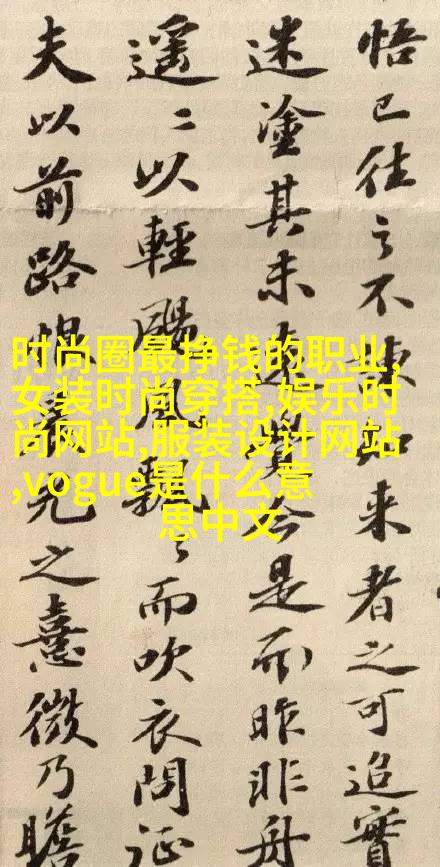 悟已往之不諫来者之可追實
迷塗其未遠覺今是而昨非舟
遥〻以輕颺風飄〻而吹衣問征
夫以前路恨晨光之熹微乃瞻
时尚圈最挣钱的职业,
女装时尚穿搭,娱乐时
尚网站,服装设计网站
,vogue是什么意
思中文